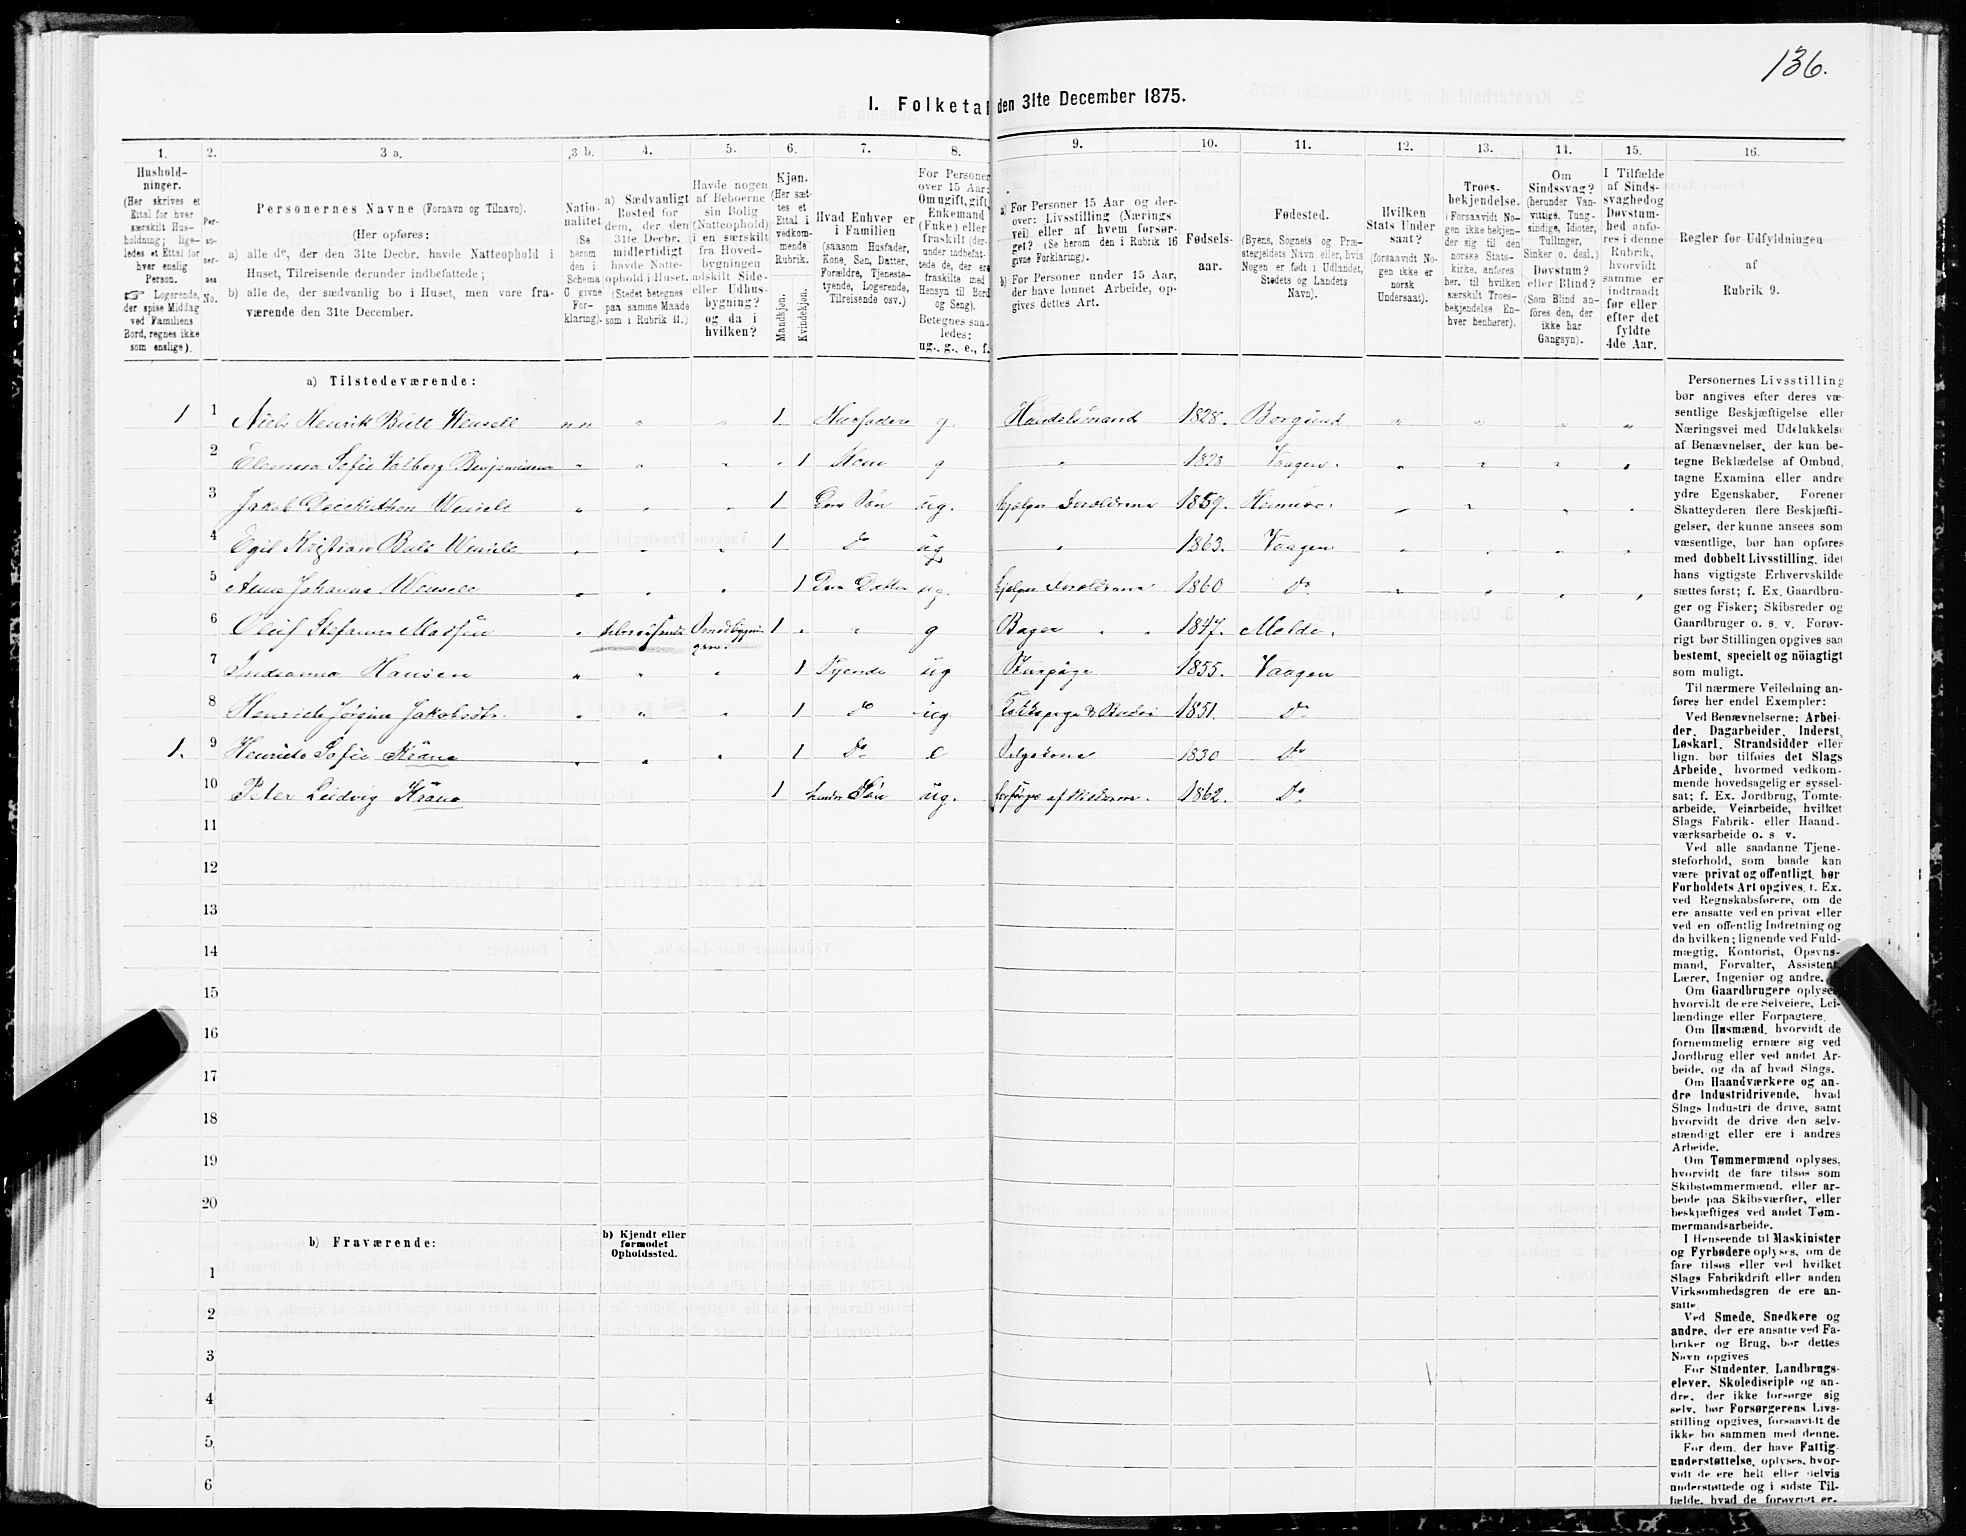 136.
1. Folketal den 31te December 1875.
1.
2.
3 a.
3 b.
4.
5.
6.
7.
8.
9.
10.
11.
12.
13.
14.
15.
16.
Hushold-
ninger.
(Her skrives et
Ettal for hver
særskilt Hus-
holdning; lige-
ledes et Ettal for
hver enslig
Person.
☞ Logerende,
der spise Middag
ved Familiens
Bord, regnes ikke
som enslige).
Per-
so-
ner-
nes
No.
Personernes Navne (Fornavn og Tilnavn).
(Her opføres:
a) alle de, der den 31te Decbr. havde Natteophold i
Huset, Tilreisende derunder indbefattede;
b) alle de, der sædvanlig bo i Huset, men vare fra-
værende den 31te December.
Natio-
nalitet
(Se
herom
den i
Schema
C givne
For-
klaring).
a) Sædvanligt
Bosted for
dem, der den
31te Decbr.
midlertidigt
havde Natte-
ophold i Huset.
(Stedet betegnes
paa samme Maade
som i Rubrik 11.)
Havde nogen
af Beboerne
sin Bolig
(Natteophold)
i en særskilt
fra Hoved-
bygningen
adskilt Side-
eller Udhus-
bygning?
og da i
hvilken?
Kjøn.
(Her sæt-
tes et
Ettal i
vedkom-
mende
Rubrik.
Mandkjøn.
Kvindekjøn.
Hvad Enhver er
i Familien
(saasom Husfader,
Kone, Søn, Datter,
Forældre, Tjeneste-
tyende, Logerende,
Tilreisende osv.)
For Personer
over 15 Aar:
Om ugift, gift,
Enkemand
(Enke) eller
fraskilt (der-
under indbefat-
tede de, der ere
fraskilte med
Hensyn til Bord
og Seng).
Betegnes saa-
ledes:
ug., g., e., f.
a) For Personer 15 Aar og der-
over: Livsstilling (Nærings
vei) eller af hvem forsør-
get? (Se herom den i Rubrik 16
givne Forklaring).
b) For Personer under 15 Aar,
der have lønnet Arbeide, op-
gives dettes Art.
Fødsels-
aar.
Fødested.
(Byens, Sognets og Præ-
stegjeldets Navn eller, hvis
Nogen er født i Udlandet,
Stedets og Landets
Navn).
Hvilken
Stats Under
saat?
(forsaavidt No-
gen ikke er
norsk
Undersaat).
Troes-
bekjendelse.
(Forsaavidt No-
gen ikke bekjen-
der sig til den
norske Stats-
kirke, anføres
her, til hvilken
særskilt Troes-
bekjendelse En-
hver henhører).
Om
Sindssvag?
(herunder Van-
vittige, Tung-
sindige, Idioter,
Tullinger,
Sinker o. desl.)
Døvstum?
eller Blind?
(Som Blind an-
føres den, der
ikke har
Gangsyn).
I Tilfælde
af Sinds-
svaghed og
Døvstum-
hed anfø-
res i denne
Rubrik,
hvorvidt
samme er
indtraadt
før eller
efter det
fyldte
4de Aar.
Regler for Udfyldningen
af
Rubrik 9.
a) Tilstedeværende:
1 1 Niels Henrik Bull Wensell 1 Husfader g Handelsmand 1828. Borgund
2 Sofie Valborg Benjaminsen 1 Kone g 1828 Vaagen.
3 Jakob Wensell 1 Søn ug. hjelper Forældrene 1859.
4 Egil Kristian Bull Wensell 1 Do ug 1863. Vaagen
5 Anna Johanna Wensell 1 Datter ug. hjelper Forældrene 1860 Do
6 Oluf Stefanus Madsen 1 g Bager 1847. Molde.
7 Hansen 1 Tyende ug Stuepige 1855. Vaagen
8 Jakobsdtr. 1 Do ug 1851. Do
1. 9 Sofie Krane 1 Do e 1830 Do
10 Peter Ludvig Krane 1 hendes Søn ug. af Moderen. 1862. Do
11
12
13
14
15
16
17
18
19
20
b) Fraværende:
b) Kjendt eller
formodet
Opholdssted.
1
2
3
4
5
6
Personernes Livsstilling
bør angives efter deres væ-
sentlige Beskjæftigelse eller
Næringsvei med Udelukkelse
af Benævnelser, der kun be-
tegne Beklædelse af Ombud,
tagne Examina eller andre
ydre Egenskaber. Forener
Skatteyderen flere Beskjæfti-
gelser, der kunne ansees som
væsentlige, bør han opføres
med dobbelt Livsstilling, idet
hans vigtigste Erhvervskilde
sættes først; f. Ex. Gaardbru-
ger og Fisker; Skibsreder og
Gaardbruger o. s. v. Forøv-
rigt bør Stillingen opgives saa
bestemt, specielt og nöiagtigt
som muligt.
Til nærmere Veiledning an-
føres her endel Exempler:
Ved Benævnelserne: Arbei-
der, Dagarbeider, Inderst,
Løskarl, Strandsidder eller
lign. bør tilføies det Slags
Arbeide, hvormed vedkom-
mende hovedsagelig er syssel-
sat; f. Ex. Jordbrug, Tomte-
arbeide, Veiarbeide, hvilket
Slags Fabrik- eller Haand-
værksarbeide o. s v.
Ved alle saadanne Tjene-
steforhold, som baade kan
være privat og offentligt, bør
Forholdets Art opgives, t. Ex.
ved Regnskabsførere, om de
ere ansatte ved en privat eller
ved en offentlig Indretning og
da hvilken; lignende ved Fuld-
mægtig, Kontorist, Opsyns-
mand, Forvalter, Assistent,
Lærer, Ingeniør og andre.
Om Gaardbrugere oplyses,
hvorvidt de ere Selveiere, Lei-
lændinge eller Forpagtere.
Om Husmænd, hvorvidt de
fornemmelig ernære sig ved
Jordbrug eller ved andet Ar-
beide, og da af hvad Slags.
Om Haandværkere og an-
dre Industridrivende, hvad
Slags Industri de drive, samt
hvorvidt de drive den selv-
stændigt eller ere i andres
Arbeide.
Om Tømmermænd oplyses,
hvorvidt de fare tilsøs som
Skibstømmermænd, eller ar-
beide paa Skibsværfter, eller
beskjæftiges ved andet Tøm-
mermandsarbeide.
I Henseende til Maskinister
og Fyrbødere oplyses, om de
fare tilsøs eller ved hvilket
Slags Fabrikdrift eller anden
Virksomhedsgren de ere an-
satte.
Ved Smede, Snedkere og
andre, der ere ansatte ved Fa-
briker og Brug, bør dettes
Navn opgives
For Studenter, Landbrugs-
elever, Skoledisciple og an-
dre, der ikke forsørge sig
selv, bør Forsørgerens Livs-
stilling opgives, forsaavidt de
ikke bo sammen med denne.
For dem, der have Fattig-
understøttelse, oplyses, hvor-
vidt de ere helt eller delvis
understøttede og i sidste Til-
fælde, hvad de forøvrigt er-